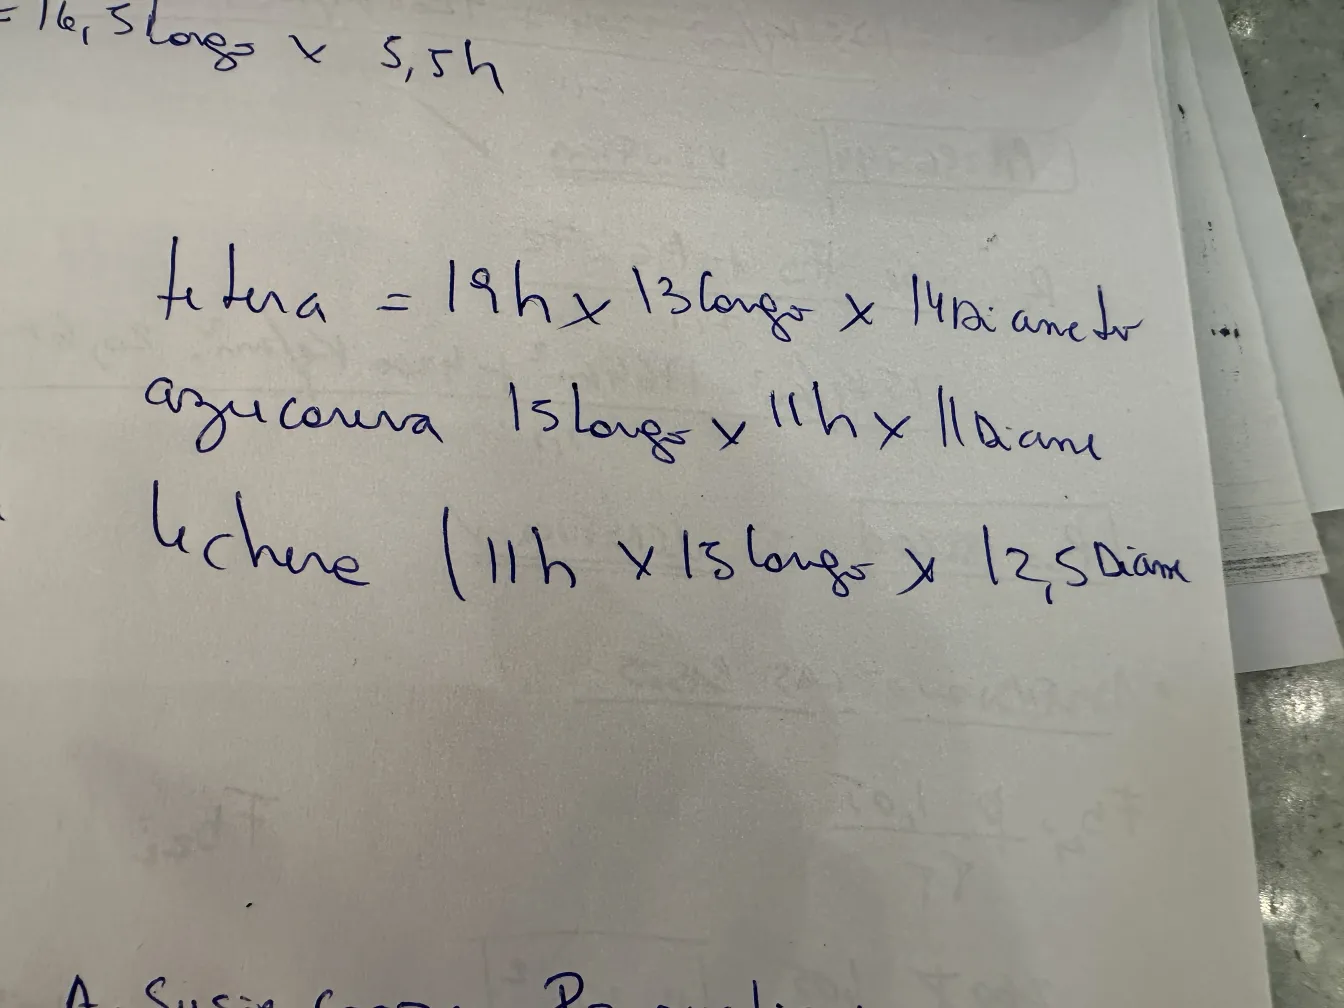 = 16,5 largo x 5,5h
tetera = 19h x 13 largo x 14 Diametr
azucarera 15 largo x 11h x 11 Diame
lechere (11h x 15 largo x 12,5 Diame